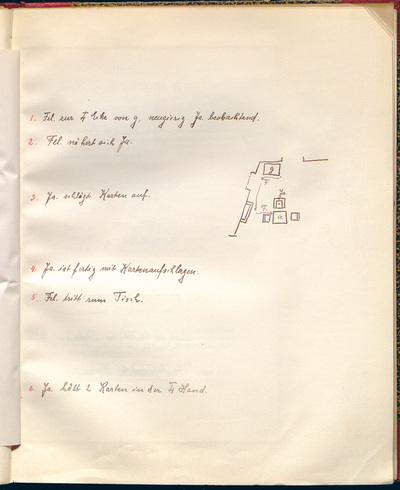 1. Fel. zur Ecke von g, neugierig Ja. beobachtend.
2. Fel nähert sich Ja.
g
F.
Ja
3. Ja. schlägt Karten auf.
F.
a
4. Ja. ist fertig mit Kartenaufschlagen.
5. Fel. tritt zum Tisch.
6. Ja. hält 2 Karten in der Hand.